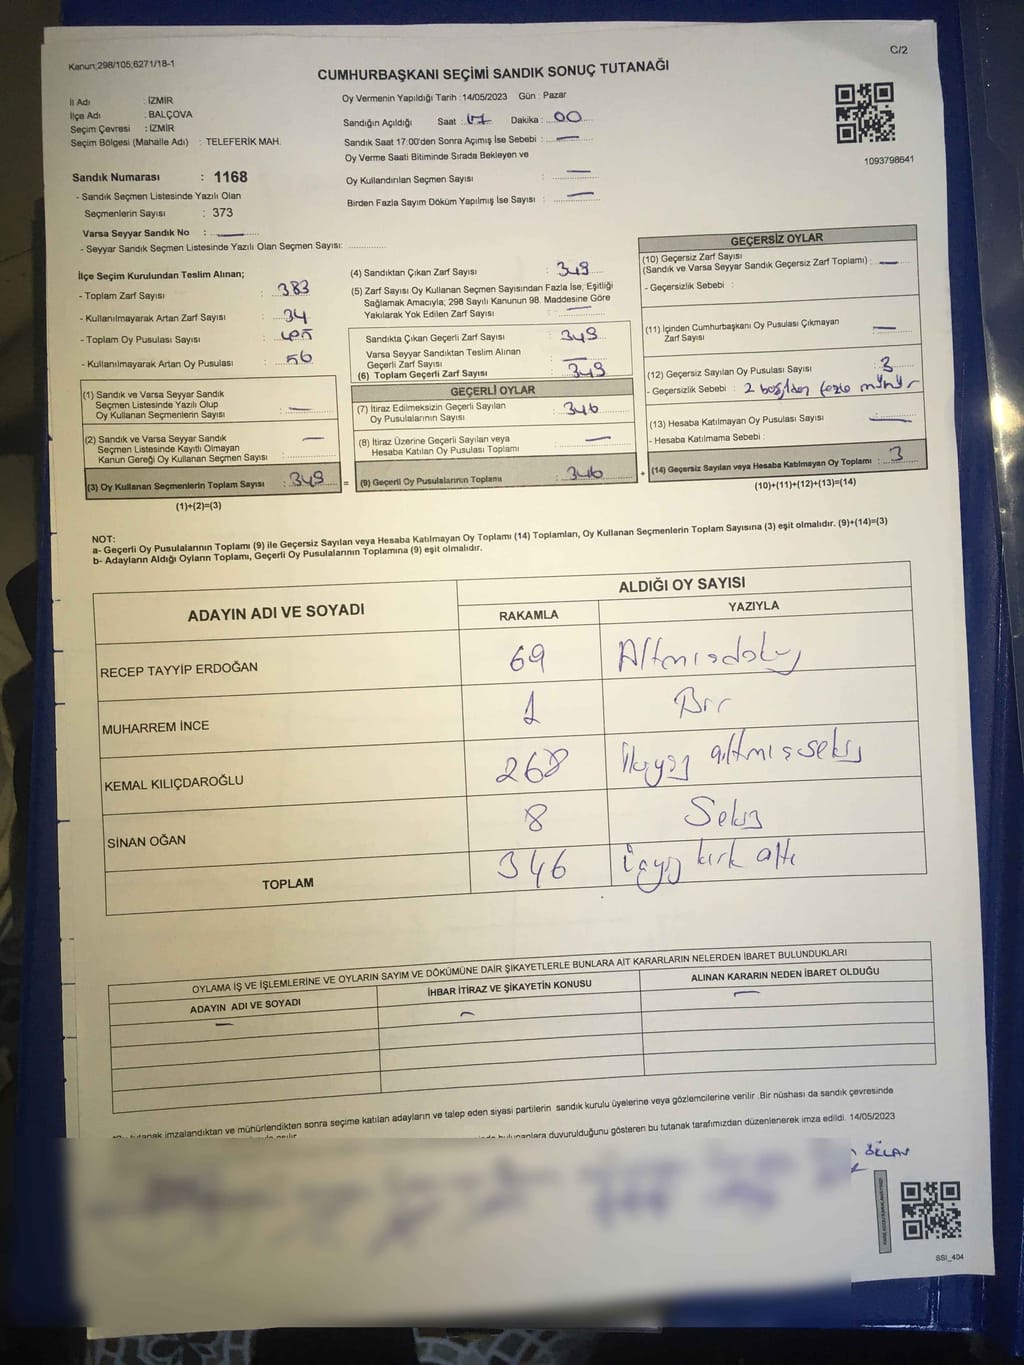 C/2
Kanun;298/105,6271/18-1
CUMHURBAŞKANI SEÇİMİ SANDIK SONUÇ TUTANAĞI
İl Adı : İZMİR
İlçe Adı : BALÇOVA
Seçim Çevresi : İZMİR
Seçim Bölgesi (Mahalle Adı) : TELEFERİK MAH.
Sandık Numarası : 1168
- Sandık Seçmen Listesinde Yazılı Olan
Seçmenlerin Sayısı : 373
Varsa Seyyar Sandık No : —
- Seyyar Sandık Seçmen Listesinde Yazılı Olan Seçmen Sayısı: ..............
Oy Vermenin Yapıldığı Tarih :14/05/2023 Gün : Pazar
Sandığın Açıldığı Saat : 17 Dakika : 00
Sandık Saat 17:00'den Sonra Açımış İse Sebebi : —
Oy Verme Saati Bitiminde Sırada Bekleyen ve
Oy Kullandırılan Seçmen Sayısı : —
Birden Fazla Sayım Döküm Yapılmış İse Sayısı : —
1093798641
İlçe Seçim Kurulundan Teslim Alınan;
- Toplam Zarf Sayısı : 383
- Kullanılmayarak Artan Zarf Sayısı : 34
- Toplam Oy Pusulası Sayısı :
- Kullanılmayarak Artan Oy Pusulası : 56
(1) Sandık ve Varsa Seyyar Sandık
Seçmen Listesinde Yazılı Olup
Oy Kullanan Seçmenlerin Sayısı : —
(2) Sandık ve Varsa Seyyar Sandık
Seçmen Listesinde Kayıtlı Olmayan
Kanun Gereği Oy Kullanan Seçmen Sayısı : —
(3) Oy Kullanan Seçmenlerin Toplam Sayısı : 349
(1)+(2)=(3)
(4) Sandıktan Çıkan Zarf Sayısı : 349
(5) Zarf Sayısı Oy Kullanan Seçmen Sayısından Fazla İse, Eşitliği
Sağlamak Amacıyla; 298 Sayılı Kanunun 98. Maddesine Göre
Yakılarak Yok Edilen Zarf Sayısı : —
Sandıkta Çıkan Geçerli Zarf Sayısı : 349
Varsa Seyyar Sandıktan Teslim Alınan
Geçerli Zarf Sayısı : —
(6) Toplam Geçerli Zarf Sayısı : 349
GEÇERLİ OYLAR
(7) İtiraz Edilmeksizin Geçerli Sayılan
Oy Pusulalarının Sayısı : 346
(8) İtiraz Üzerine Geçerli Sayılan veya
Hesaba Katılan Oy Pusulası Toplamı : —
= (9) Geçerli Oy Pusulalarının Toplamı : 346 +
GEÇERSİZ OYLAR
(10) Geçersiz Zarf Sayısı
(Sandık ve Varsa Seyyar Sandık Geçersiz Zarf Toplamı) : —
- Geçersizlik Sebebi :
(11) İçinden Cumhurbaşkanı Oy Pusulası Çıkmayan
Zarf Sayısı : —
(12) Geçersiz Sayılan Oy Pusulası Sayısı : 3
- Geçersizlik Sebebi : 2 fazla mühür
(13) Hesaba Katılmayan Oy Pusulası Sayısı : —
- Hesaba Katılmama Sebebi :
(14) Geçersiz Sayılan veya Hesaba Katılmayan Oy Toplamı : 3
(10)+(11)+(12)+(13)=(14)
NOT:
a- Geçerli Oy Pusulalarının Toplamı (9) ile Geçersiz Sayılan veya Hesaba Katılmayan Oy Toplamı (14) Toplamları, Oy Kullanan Seçmenlerin Toplam Sayısına (3) eşit olmalıdır. (9)+(14)=(3)
b- Adayların Aldığı Oyların Toplamı, Geçerli Oy Pusulalarının Toplamına (9) eşit olmalıdır.
ADAYIN ADI VE SOYADI
ALDIĞI OY SAYISI
RAKAMLA YAZIYLA
RECEP TAYYİP ERDOĞAN 69 Altmışdokuz
MUHARREM İNCE 1 Bir
KEMAL KILIÇDAROĞLU 268 İkiyüz altmış sekiz
SİNAN OĞAN 8 Sekiz
TOPLAM 346 Üçyüz kırk altı
OYLAMA İŞ VE İŞLEMLERİNE VE OYLARIN SAYIM VE DÖKÜMÜNE DAİR ŞİKAYETLERLE BUNLARA AİT KARARLARIN NELERDEN İBARET BULUNDUKLARI
ADAYIN ADI VE SOYADI İHBAR İTİRAZ VE ŞİKAYETİN KONUSU ALINAN KARARIN NEDEN İBARET OLDUĞU
— — —
tutanak imzalandıktan ve mühürlendikten sonra seçime katılan adayların ve talep eden siyasi partilerin sandık kurulu üyelerine veya gözlemcilerine verilir .Bir nüshası da sandık çevresinde
bulunanlara duyurulduğunu gösteren bu tutanak tarafımızdan düzenlenerek imza edildi. 14/05/2023
SSI_404